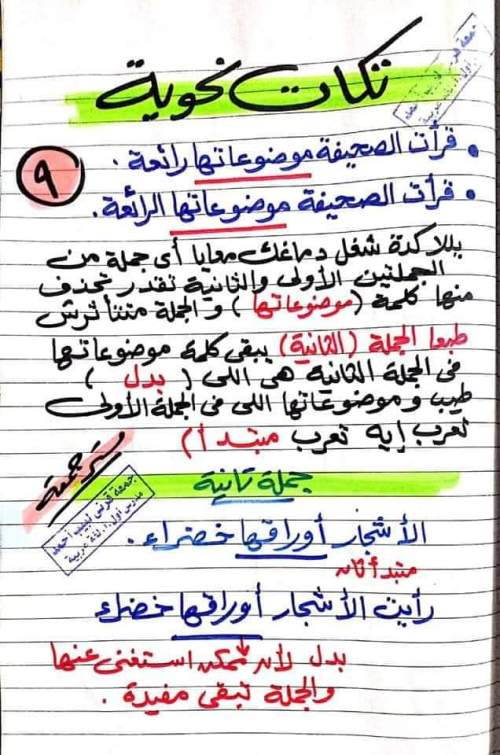 تكات نحوية
٩
• قرأت الصحيفة موضوعاتها رائعة.
• قرأت الصحيفة موضوعاتها الرائعة.
يللا كدة شغل دماغك معايا أى جملة من
الجملتين الأولى والثانية تقدر تحذف
منها كلمة (موضوعاتها) والجملة متتأثرش
طبعا الجملة (الثانية) يبقى كلمة موضوعاتها
فى الجملة الثانية هى اللى (بدل)
طيب وموضوعاتها اللى فى الجملة الأولى
تعرب إيه تعرب مبتدأ)
جملة تانية
جمعة قرنى لبيب أحمد
مدرس أول أ. لغة عربية
الأشجار أوراقها خضراء.
مبتدأ ثان
رأيت الأشجار أوراقها خضراء
بدل لأنه ممكن استغنى عنها
والجملة تبقى مفيدة.